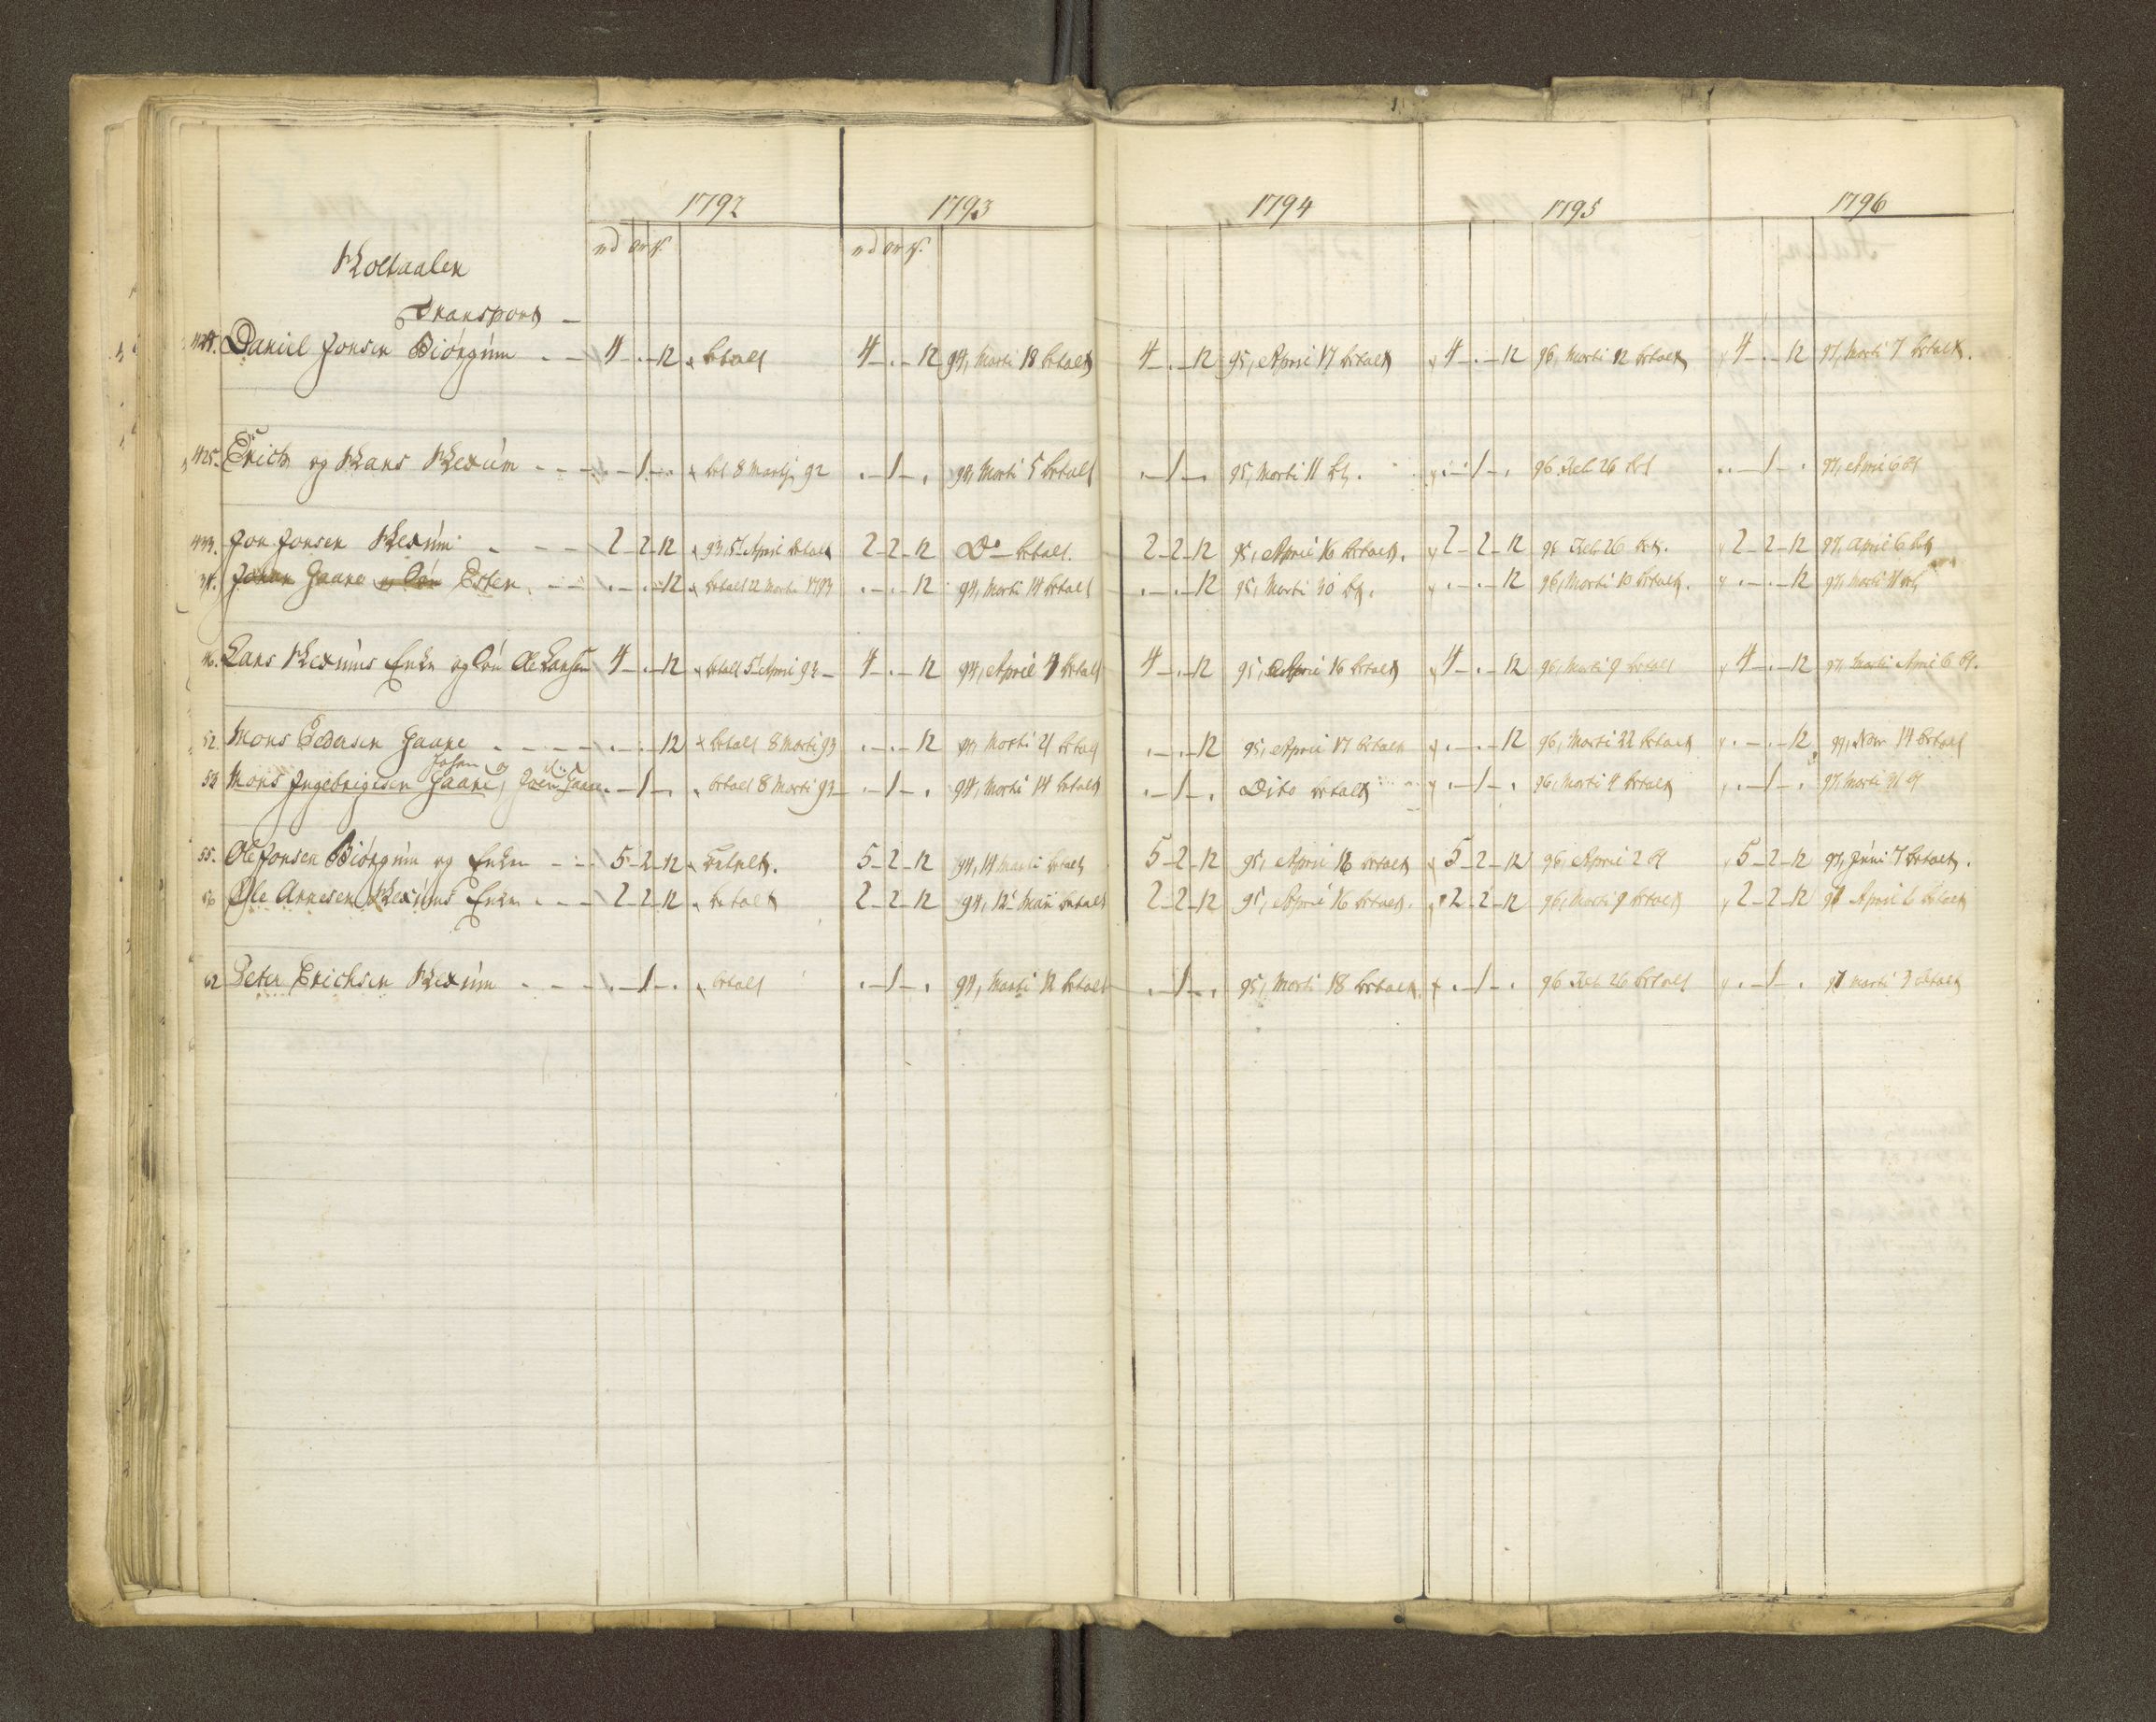 1792 1793 1794 1795 1796
rd ort s. rd ort s.
Holtaalen
Transport
424. Daniel Jonsen Biörgúm - - 4 - . - 12 betalt 4 - . - 12 94, Marti 18 betalt 4 - . - 12 95, April 17 betalt 4 - . - 12 96, Marti 12 betalt 4 - . - 12 97, Marti 7 betalt.
425. Erich og Hans Hexúm - - - . - 1 - . bet 8 Martj 92 . - 1 - . 94, Marti 5 betalt . - 1 - . 95, Marti 11 bt. . - 1 - . 96 Feb 26 bet . - 1 - . 97, April 6 bt
433. Jon Jonsen Hexúm - - - 2 - 2 - 12 93, 5 April betalt 2 - 2 - 12 Do betalt. 2 - 2 - 12 95, April 16 betalt. 2 - 2 - 12 96 Feb 26 bet. 2 - 2 - 12 97, April 6 bt
Johan Gaare og Sön Esten - - . - . - 12 betalt 22 Martii 1793 . - . - 12 94, Marti 14 betalt . - . - 12 95, Marti 30 bt. . - . - 12 96, Marti 10 betalt. . - . - 12 97, Marti 11 bt
46. Lars Hexúms Enke og Sön Ole Larsen 4 - . - 12 betalt 5 April 93 - 4 - . - 12 94, April 4 betalt 4 - . - 12 95, April 16 betalt 4 - . - 12 96, Marti 9 betalt 4 - . - 12 97, Marti April 6 bt.
52. Mons Pedersen Gaare - - - - . - . - 12 betalt 8 Marti 93 . - . - 12 94, Marti 21 betalt . - . - 12 95, April 17 betalt . - . - 12 96, Marti 22 betalt . - . - 12 97, Novr 14 betalt
Johan og
53 Mons Ingebrigtsen Gaare, Joen Gaare . - 1 - . betalt 8 Marti 93 - . - 1 - . 94, Marti 14 betalt . - 1 - . Dito betalt . - 1 - . 96, Marti 4 betalt . - 1 - . 97, Marti 31 bt
55. Ole Jonsen Biörgúm og Enke - - 5 - 2 - 12 betalt. 5 - 2 - 12 94, 14 Marti betalt 5 - 2 - 12 95, April 16 betalt 5 - 2 - 12 96, April 2 bt 5 - 2 - 12 97, Júni 7 betalt.
56 Ole Arnesen Hexúms Enke - - - 2 - 2 - 12 betalt 2 - 2 - 12 94, 12 Maii betalt 2 - 2 - 12 95, April 16 betalt. 2 - 2 - 12 96, Marti 9 betalt 2 - 2 - 12 97 April 6 betalt
62 Peter Erichsen Hexúm - - - . - 1 - . betalt . - 1 - . 94, Marti 12 betalt . - 1 - . 95, Marti 18 betalt. . - 1 - . 96 Feb 26 betalt . - 1 - . 97 Marti 3 betalt